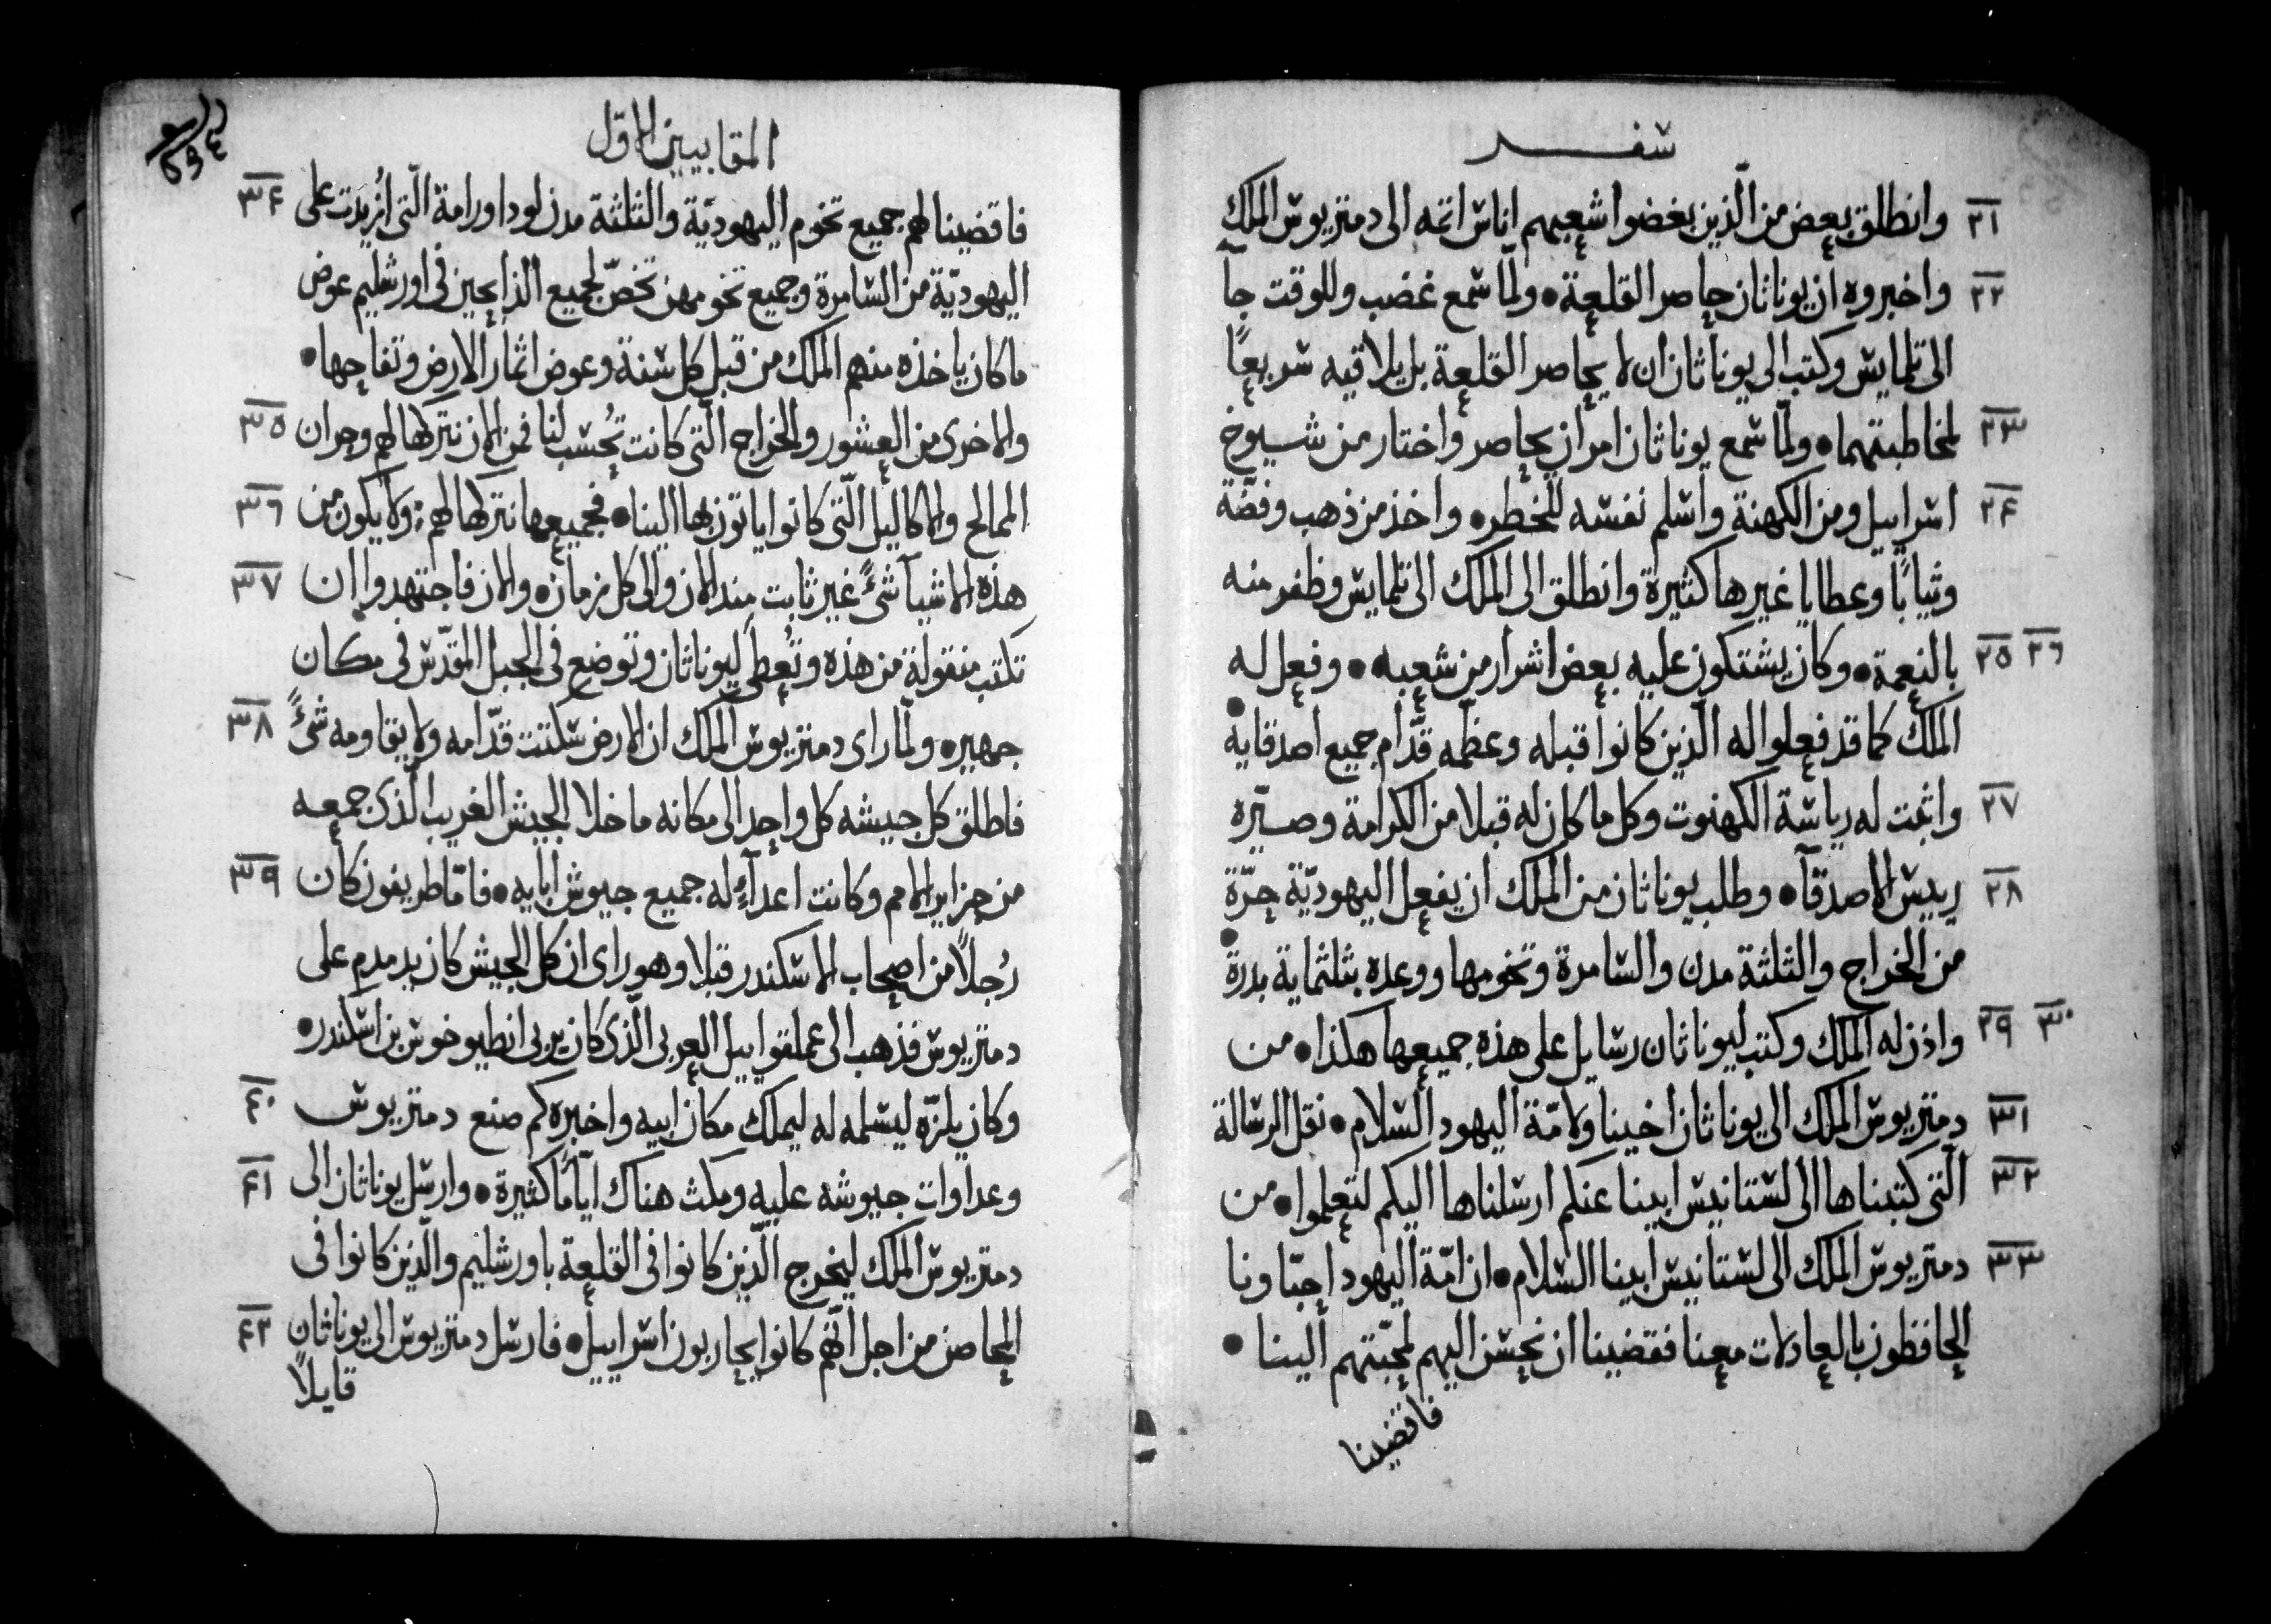 سفر
٢١ وانطلق بعض من الّذين بغضوا شعبهم اناس اثمه الى دمتريوس الملك
٢٢ واخبروه ان يوناثان حاصر القلعة • ولمّا سمع غضب وللوقت جآ
الى تلمايس وكتب الى يوناثان ان لا يحاصر القلعة بل يلاقيه سريعًا
٢٣ لمخاطبتهما • ولمّا سمع يوناثان امر ان يحاصر واختار من شيوخ
٢٤ اسراييل ومن الكهنة واسلم نفسه للخطر • واخذ من ذهب وفضّة
وثيابًا وعطايا غيرها كثيرة وانطلق الى الملك الى تلمايس وظفر منه
٢٥ ٢٦ بالنعمة • وكان يشتكون عليه بعض اشرار من شعبه • وفعل له
الملك كما قد فعلوا له الّذين كانوا قبله وعظّمه قدّام جميع اصدقايه •
٢٧ واثبت له رياسة الكهنوت وكل ما كان له قبلا من الكرامة وصيّره
٢٨ رييس الاصدقآ • وطلب يوناثان من الملك ان يفعل اليهوديّة حرّة
من الخراج والثلثة مدن والسامرة وتخومها ووعده بثلثماية بدرة •
٢٩ ٣٠ واذن له الملك وكتب ليوناثان رسايل على هذه جميعها هكذا • من
٣١ دمتريوس الملك الى يوناثان اخينا ولامّة اليهود السلام • نقل الرسالة
٣٢ الّتى كتبناها الى لستانيس ابينا عنكم ارسلناها اليكم لتعلموا • من
٣٣ دمتريوس الملك الى لستانيس ابينا السلام • ان امّة اليهود احبّاونا
الحافظون بالعادلات معنا فقضينا ان نحسن اليهم لمحبّتهم الينا •
فاقضينا
المقابيين الاوّل
٣٤ فاقضينا لهم جميع تخوم اليهوديّة والثلثة مدن لودا ورامة الّتى ازُيدَت على
اليهوديّة من السامرة وجميع تخومهن تخصّ لجميع الذابحين فى اورشليم عوض
ما كان ياخذه منهم الملك من قبل كل سنة وعوض اثمار الارض وتفاحها •
٣٥ والاخرى من العشور والخراج الّتى كانت تُحسَب لنا فمن الان نتركها لهم وجران
٣٦ الممالح والاكاليل الّتى كانوا ياتون بها الينا • فجميعها نتركها لهم ولا يكون من
٣٧ هذه الاشيآ شىءً غير ثابت منذ الان والى كل زمان • والان فاجتهدوا ان
تكتب منقولة من هذه وتُعطى ليوناثان وتوضع فى الجبل المقدّس فى مكان
٣٨ جهير • ولمّا راى دمتريوس الملك ان الارض سكتت قدّامه ولا يقاومه شىءً
فاطلق كل جيشه كل واحد الى مكانه ما خلا الجيش الغريب الّذى جمعه
٣٩ من جزاير الامم وكانت اعدآءٍ له جميع جيوش ابايه • فامّا طريفون كان
رُجلاً من اصحاب الاسكندر قبلا وهو راى ان كل الجيش كان يدمدم على
دمتريوس فذهب الى عملقواييل العربى الّذى كان يربى انطيوخوس بن اسكندر •
٤٠ وكان يلزّه ليسلمه له ليملك مكان ابيه واخبره كم صنع دمتريوس
٤١ وعداوات جيوشه عليه ومكث هناك ايّامًا كثيرة • وارسل يوناثان الى
دمتريوس الملك ليخرج الّذين كانوا فى القلعة باورشليم والّذين كانوا فى
٤٢ المحاصن من اجل انّهم كانوا يحاربون اسراييل • فارسل دمتريوس الى يوناثان
قايلاً